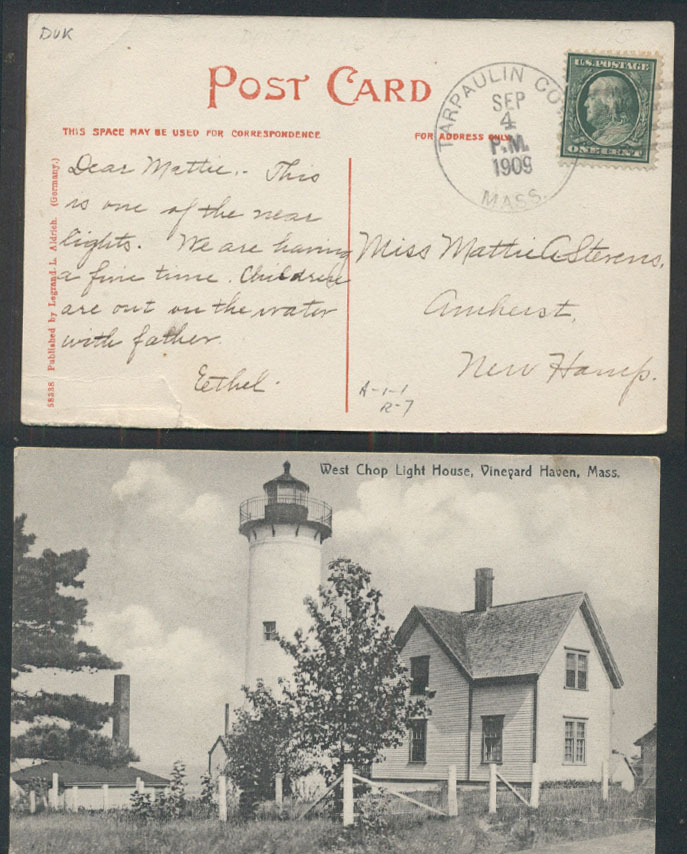 DUK
POST CARD
THIS SPACE MAY BE USED FOR CORRESPONDENCE
FOR ADDRESS ONLY
TARPAULIN CO
SEP
4
P.M.
1909
MASS.
U.S. POSTAGE
ONE CENT
58238 Published by Legrand. L. Aldrich. (Germany.)
Dear Mattie,- This
is one of the near
lights. We are having
a fine time. Children
are out on the water
with father.
Eethel.
Miss Mattie A Stevens,
Amherst,
New Hamp.
A-1-1
R-7
West Chop Light House, Vineyard Haven, Mass.